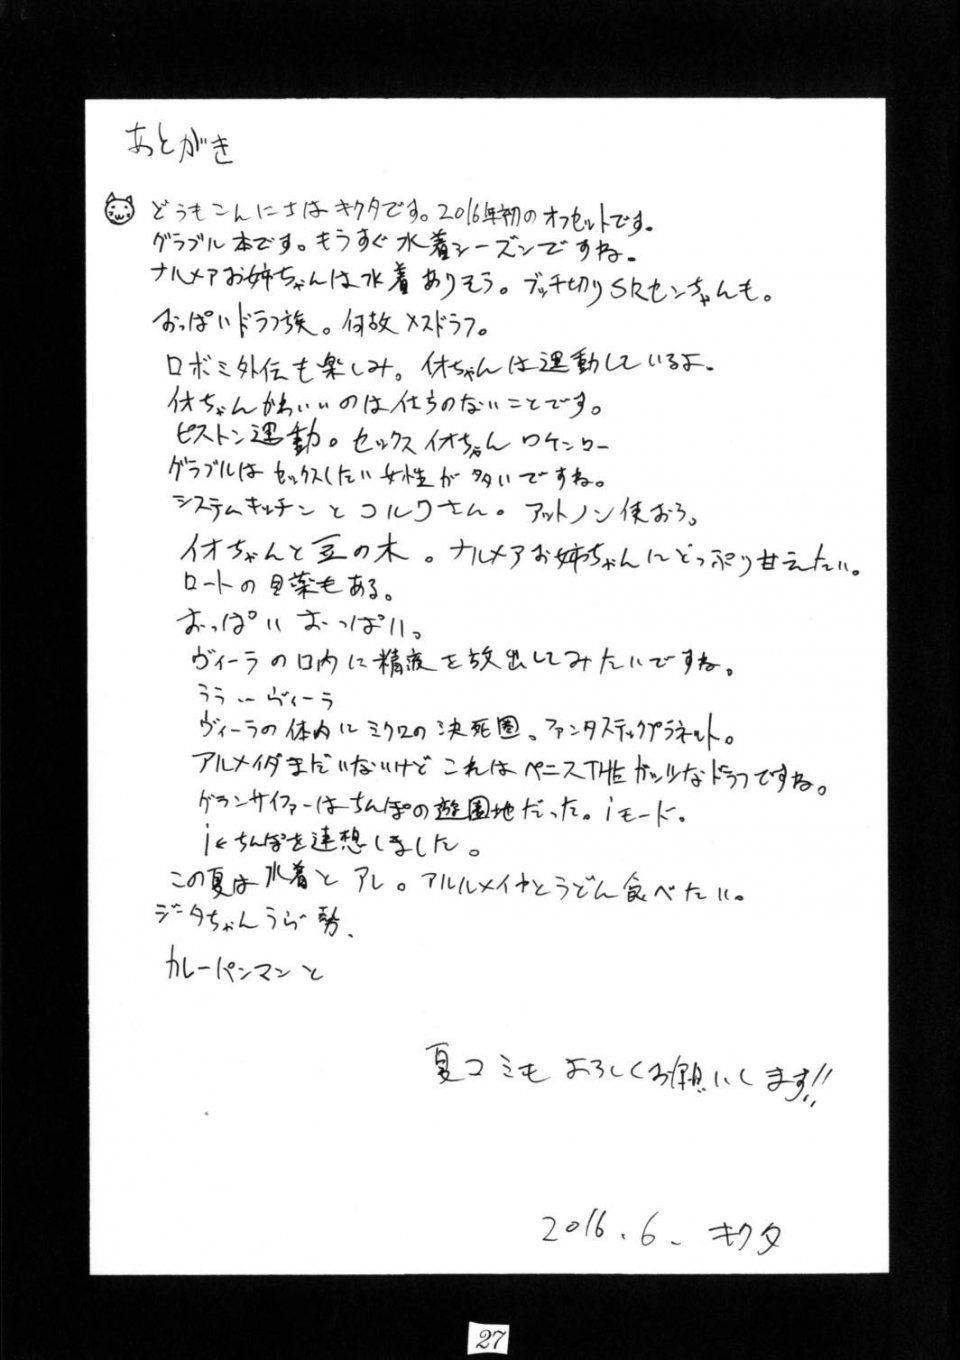 あとがき
どうもこんにちはキクタです。2016年初のオフセットです。
グラブル本です。もうすぐ水着シーズンですね。
ナルメアお姉ちゃんは水着ありそう。ブッチ切りSRセンちゃんも。
おっぱいドラフ族。何故メスドラフ。
ロボミ外伝も楽しみ。イオちゃんは運動しているよ。
イオちゃんかわいいのは仕方のないことです。
グラブルはセックスしたい女性が多いですね。
システムキッチンとコルワさん。アットノン使おう。
イオちゃんと豆の木。ナルメアお姉ちゃんにどっぷり甘えたい。
ロートの目薬もある。
おっぱい おっぱい。
ヴィーラの口内に精液を放出してみたいですね。
ララ…ヴィーラ
ヴィーラの体内にミクロの決死圏。ファンタスティックプラネット。
アルメイダまだいないけどこれはペニスTHEガッツなドラフですね。
グランサイファーはちんぽの遊園地だった。iモード。
i←ちんぽを連想しました。
この夏は水着とアレ。アルルメイヤとうどん食べたい。
ジータちゃん 勢、
カレーパンマンと
夏コミもよろしくお願いします!!
2016.6. キクタ
27